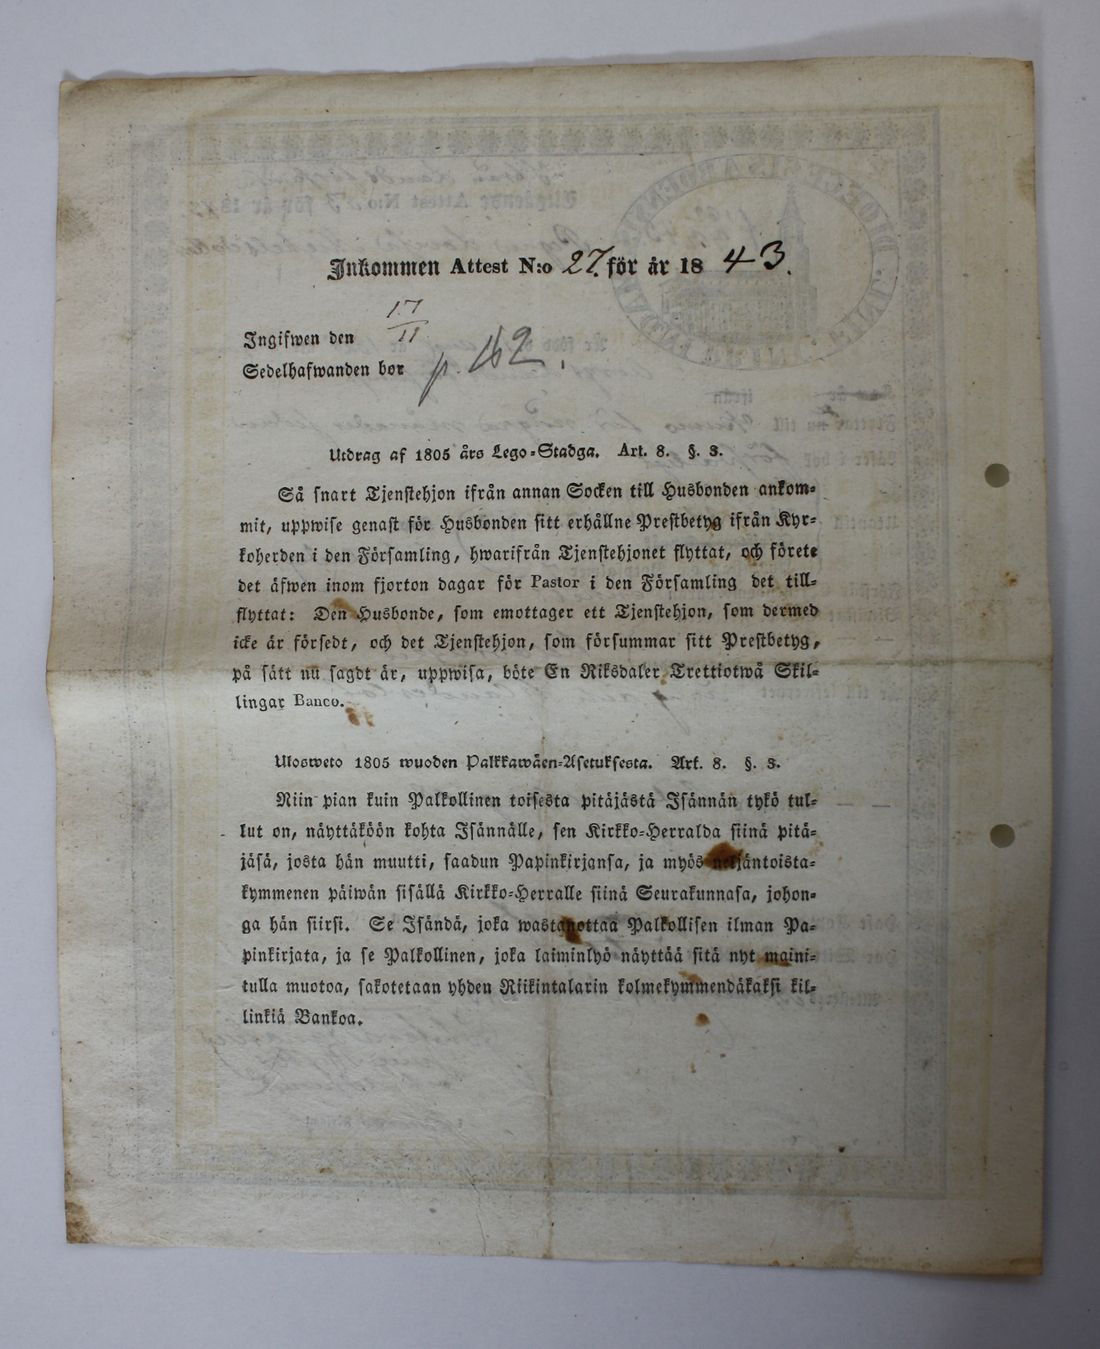 Inkommen Attest N:o 27. för år 18 43.
Ingifwen den 17/11
Sedelhafwanden bor p. 162.
Utdrag af 1805 års Lego-Stadga. Art. 8. §. 3.
Så snart Tjenstehjon ifrån annan Socken till Husbonden ankom-
mit, uppwise genast för Husbonden sitt erhållne Prestbetyg ifrån Kyr-
koherden i den Församling, hwarifrån Tjenstehjonet flyttat, och förete
det äfwen inom fjorton dagar för Pastor i den Församling det till-
flyttat: Den Husbonde, som emottager ett Tjenstehjon, som dermed
icke är försedt, och det Tjenstehjon, som försummar sitt Prestbetyg,
på sätt nu sagdt är, uppwisa, böte En Riksdaler Trettiotwå Skil-
lingar Banco.
Ulosweto 1805 wuoden Palkkawäen-Asetuksesta. Art. 8. §. 3.
Niin pian kuin Palkollinen toisesta pitäjästä Isännän tykö tul-
lut on, näyttäköön kohta Isännälle, sen Kirkko-Herralda siinä pitä-
jäsä, josta hän muutti, saadun Papinkirjansa, ja myös neljäntoista-
kymmenen päiwän sisällä Kirkko-Herralle siinä Seurakunnasa, johon-
ga hän siirsi. Se Isändä, joka wastanottaa Palkollisen ilman Pa-
pinkirjata, ja se Palkollinen, joka laiminlyö näyttää sitä nyt maini-
tulla muotoa, sakotetaan yhden Riikintalarin kolmekymmendäkaksi kil-
linkiä Bankoa.